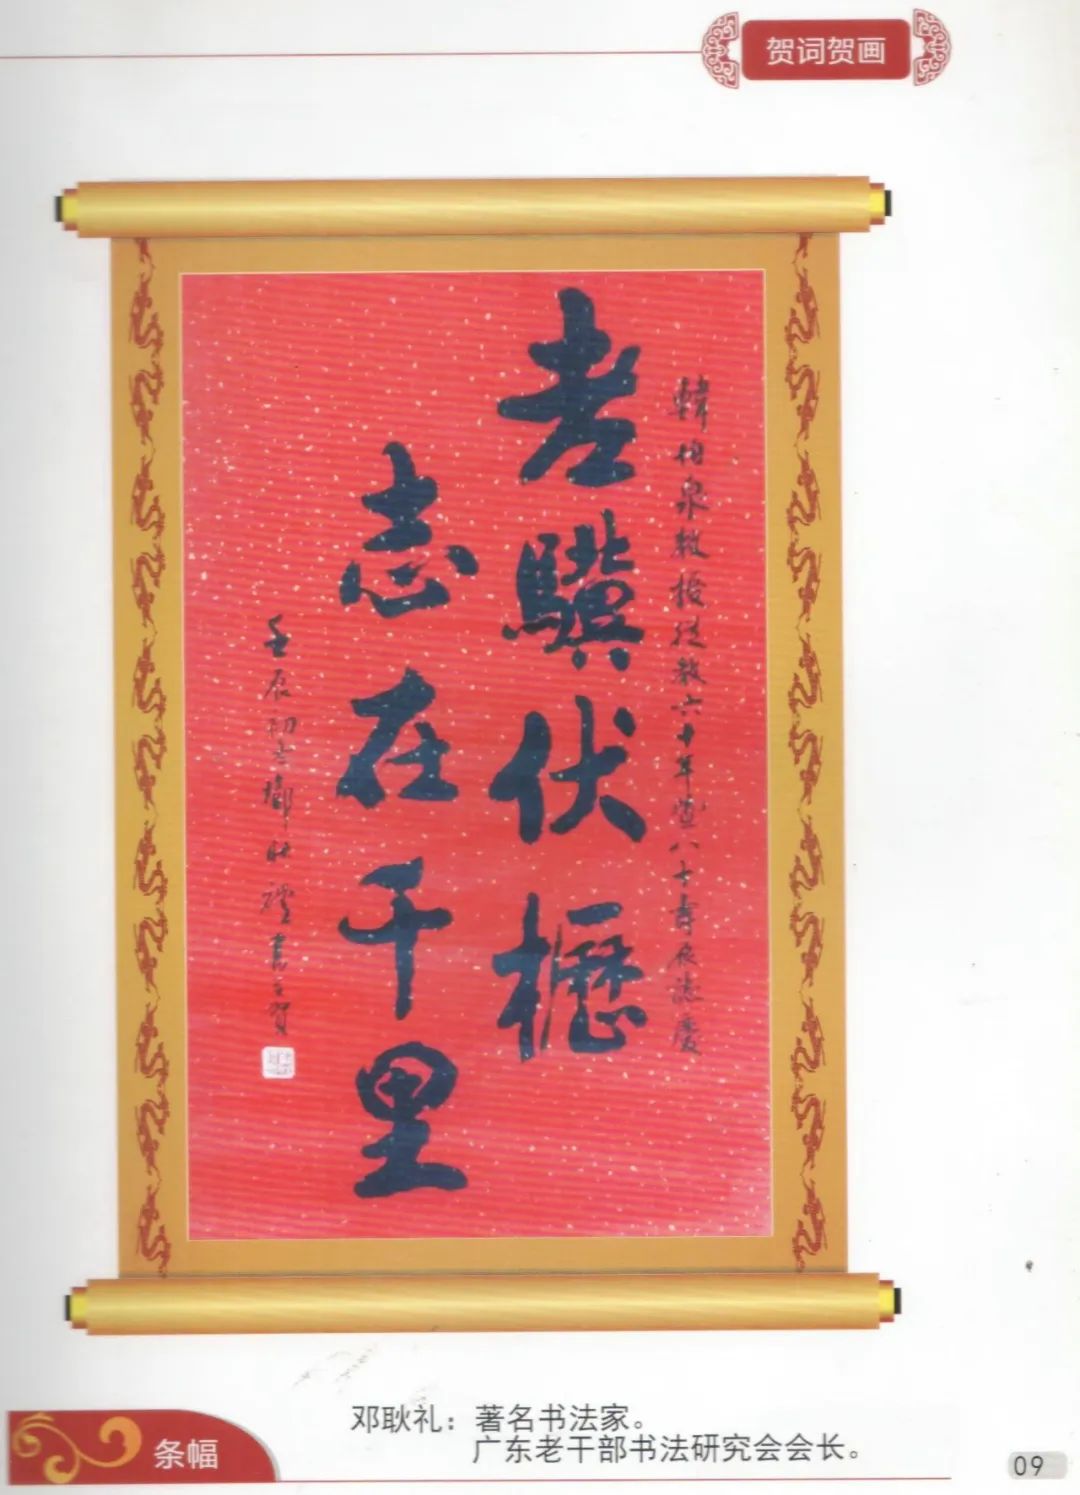 贺词贺画
韓柏泉教授從教六十年暨八十壽辰誌慶
老驥伏櫪
志在千里
壬辰初吉鄧耿禮書賀
条幅
邓耿礼：著名书法家。
广东老干部书法研究会会长。
09